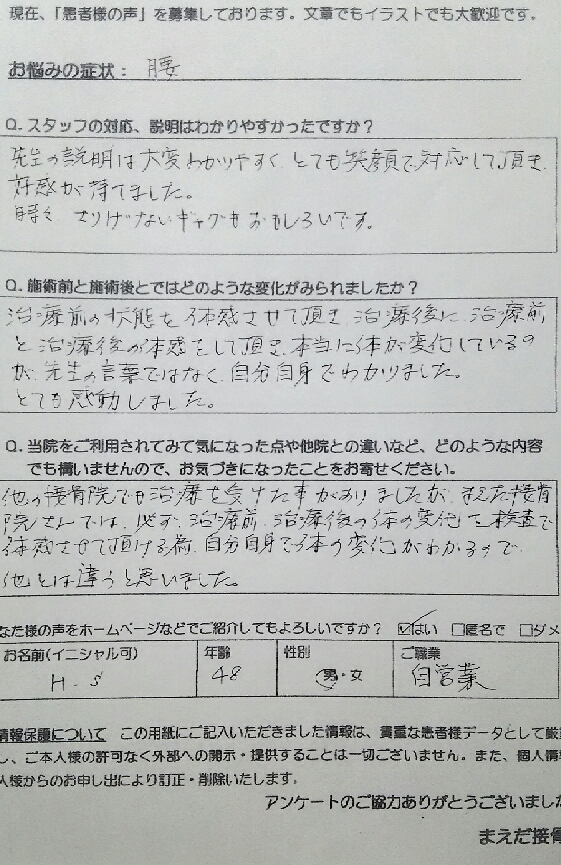 現在、「患者様の声」を募集しております。文章でもイラストでも大歓迎です。
お悩みの症状： 腰
Q. スタッフの対応、説明はわかりやすかったですか？
先生の説明は大変わかりやすく、とても笑顔で対応して頂き、
好感が持てました。
時々、さりげないギャグもおもしろいです。
Q. 施術前と施術後とではどのような変化がみられましたか？
治療前の状態を体感させて頂き、治療後に、治療前
と治療後の体感をして頂き、本当に体が変化しているの
が、先生の言葉ではなく、自分自身でわかりました。
とても感動しました。
Q. 当院をご利用されてみて気になった点や他院との違いなど、どのような内容
でも構いませんので、お気づきになったことをお寄せください。
他の接骨院でも治療を受けた事がありましたが、まえだ接骨
院さんでは、必ず、治療前、治療後の体の変化を検査で
体感させて頂ける為、自分自身で体の変化がわかるので
他とは違うと思いました。
なた様の声をホームページなどでご紹介してもよろしいですか？ ☑はい □匿名で □ダメ
お名前(イニシャル可) 年齢 性別 ご職業
H.S 48 男・女 自営業
情報保護について この用紙にご記入いただきました情報は、貴重な患者様データとして厳
し、ご本人様の許可なく外部への開示・提供することは一切ございません。また、個人情
人様からのお申し出により訂正・削除いたします。
アンケートのご協力ありがとうございました
まえだ接骨